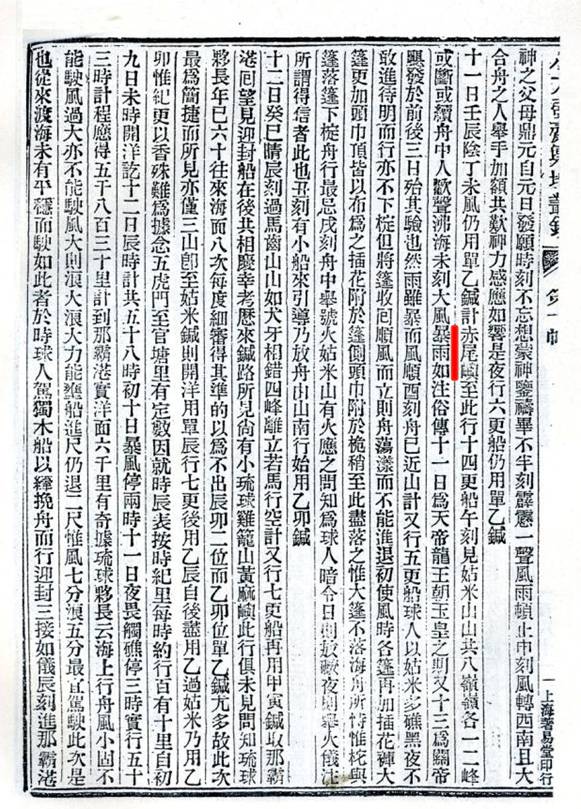 小方壺齋輿地叢鈔　第十帙
上海著易堂印行
神之父母鼎元自元日發願時刻不忘想蒙神鑒禱畢不半刻霹靂一聲風雨頓止申刻風轉西南且大
合舟之人舉手加額共歎神力感應如響是夜行六更船仍用單乙鍼
十一日壬辰陰丁未風仍用單乙鍼計赤尾嶼至此行十四更船午刻見姑米山山共八嶺嶺各一二峰
或斷或續舟中人歡聲沸海未刻大風暴雨如注俗傳十一日爲天帝龍王朝玉皇之期又十三爲關帝
颶發於前後三日殆其驗也然雨雖暴而風順酉刻舟已近山計又行五更船球人以姑米多礁黑夜不
敢進待明而行亦不下椗但將篷收囘順風而立則舟蕩漾而不能進退初使風時各篷再加插花褲大
篷更加頭巾頂皆以布爲之插花附於篷側頭巾附於桅稍至此盡落之惟大篷不落海舟所恃惟柁與
篷落篷下椗舟行最忌戌刻舟中舉號火姑米山有火應之問知爲球人暗令日則放礮夜則舉火儀注
所謂得信者此也丑刻有小船來引導乃放舟由山南行始用乙卯鍼
十二日癸巳晴辰刻過馬齒山山如犬牙相錯四峰離立若馬行空計又行七更船再用甲寅鍼取那霸
港囘望見迎封船在後共相慶幸考歷來鍼路所見尚有小琉球雞籠山黃麻嶼此行俱未見問知琉球
夥長年已六十往來海面八次每度細審得其準的以爲不出辰卯二位而乙卯位單乙鍼尤多故此次
最爲簡捷而所見亦僅三山卽至姑米鍼則開洋用單辰行七更後用乙辰自後盡用乙過姑米乃用乙
卯惟紀更以香殊難爲據念五虎門至官塘里有定數因就時辰表按時紀里每時約行百有十里自初
九日未時開洋訖十二日辰時計共五十八時初十日暴風停兩時十一日夜畏觸礁停三時實行五十
三時計程應得五千八百三十里計到那霸港實洋面六千里有奇據琉球夥長云海上行舟風小固不
能駛風過大亦不能駛風大則浪大浪大力能壅船進尺仍退二尺惟風七分浪五分最宜駕駛此次是
也從來渡海未有平穩而駛如此者於時球人駕獨木船以縴挽舟而行迎封三接如儀辰刻進那霸港